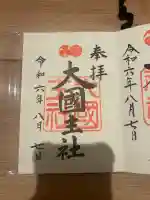 奉拝
大國主社
令和六年八月七日
令和六年八月七日